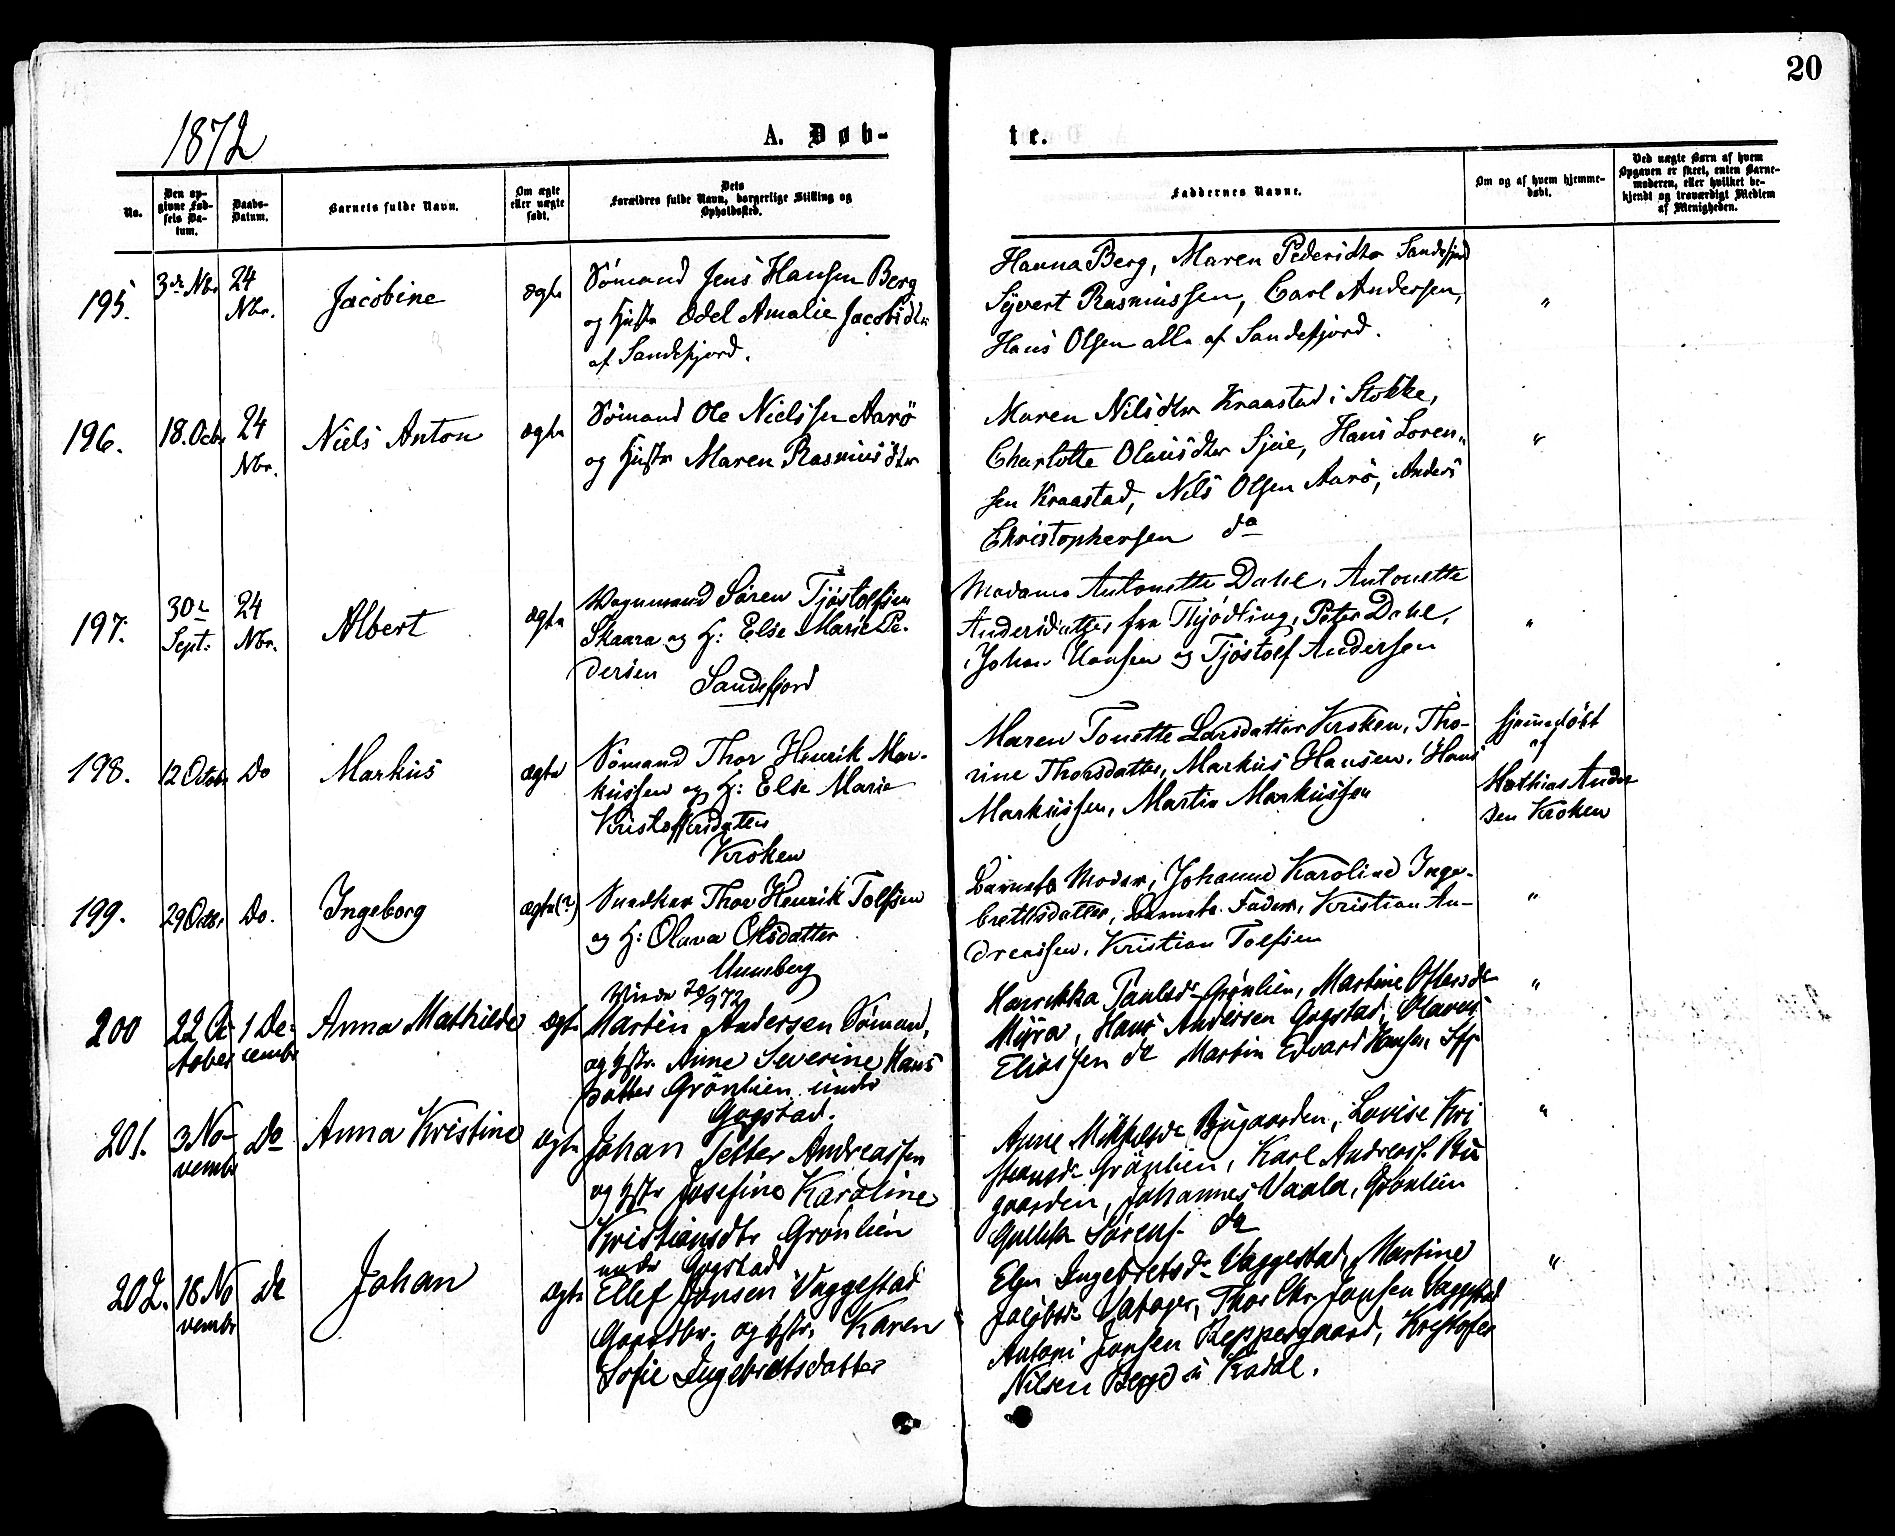 20
1872
A. Døb-
te.
No.
Den op-
givne Fød-
sels Da-
tum.
Daabs-
Datum.
Barnets fulde Navn.
Om ægte
eller uægte
født.
Dets
Forældres fulde Navn, borgerlige Stilling og
Opholdssted.
Faddernes Navne.
Om og af hvem hjemme-
døbt.
Ved uægte Børn af hvem
Opgaven er skeet, enten Barne-
moderen, eller hvilket be-
kjendt og troværdigt Medlem
af Menigheden.
195.
3de Nbr
24
Nbr.
Jacobine
ægte
Sømand Jens Hansen Berg
og Hustr Odel Amalie Jacobsdtr
af Sandefjord.
Hanna Berg, Maren Pedersdtr Sandefjord
Syvert Rasmussen, Carl Andersen,
Hans Olsen alle af Sandefjord.
"
196.
18. Octr
24
Nbr.
Niels Anton
ægte
Sømand Ole Nielssen Aarø
og Hustr Maren Rasmusdtr
Maren Nilsdtr Kraastad i Stokke,
Charlotte Olausdtr Sjue, Hans Loren-
sen Kraastad, Nils Olsen Aarø, Anders
Christophersen do
"
197.
30te
Sept.
24
Nbr.
Albert
ægte
Vognmand Søren Tjøstolfsen
Skaara og H: Else Marie Pe-
dersen
Sandefjord
Madame Antonette Dahl, Antonette
Andersdatter fra Thjødling, Peter Dahl,
Johan Hansen og Tjøstolf Andersen
"
198.
12 Octobr
Do
Markus
ægte
Sømand Thor Henrik Mar-
kussen og H: Else Marie
Kristoffersdatter
Kroken
Maren Tonette Larsdatter Kroken, Tho-
rine Thorsdatter, Markus Hansen, Hans
Markussen, Martin Markussen
hjemmedøbt
af
Mathias Ander
sen Kroken
199.
29 Octbr
Do.
Ingeborg
ægte(?)
Snedker Thor Henrik Tolfsen
og H: Olava Olsdatter
Barnets Moder, Johanne Karoline Inge-
bretsdatter, Barnets Fader, Kristian An-
dreassen, Kristian Tolfsen
"
200
22 Oc-
tober
1 De-
cembr
Anna Mathilde
ægte
Viede 20/9 72
Martin Andersen Sømand,
og Hstr. Anne Severine Hans
datter Grönlien under
Gogstad.
Henrikka Paulsdr Grønlien, Martine Ollersdr
Myra, Hans Andersen Gogstad, Olaves
Eliassen do Martin Edvard Hansen
"
201.
3 No-
vembr
Do
Anna Kristine
ægte
Johan Petter Andreassen
og Hstr Josefine Karoline
Kristiansdtr Grönlien
under Gogstad
Anne Mikkelsdr Bugaarden, Lovise Kri
stiansdr Grönlien, Karl Andreass. Bu
gaarden, Johannes Vaala, Grönlien
Gullik Sørens. do
"
202.
18 No
vembr
Do
Johan
ægte
Ellef Jonsen Vaggestad
Gaardbr. og Hstr. Karen
Sofie Ingebretsdatter
Elen Ingebretsdr Vaggestad, Martine
Thor Chr. Jonsen Vaggestad
Antoni Jonsen Reppergaard, Kristofer
Nilsen Berge i Kodal.
"